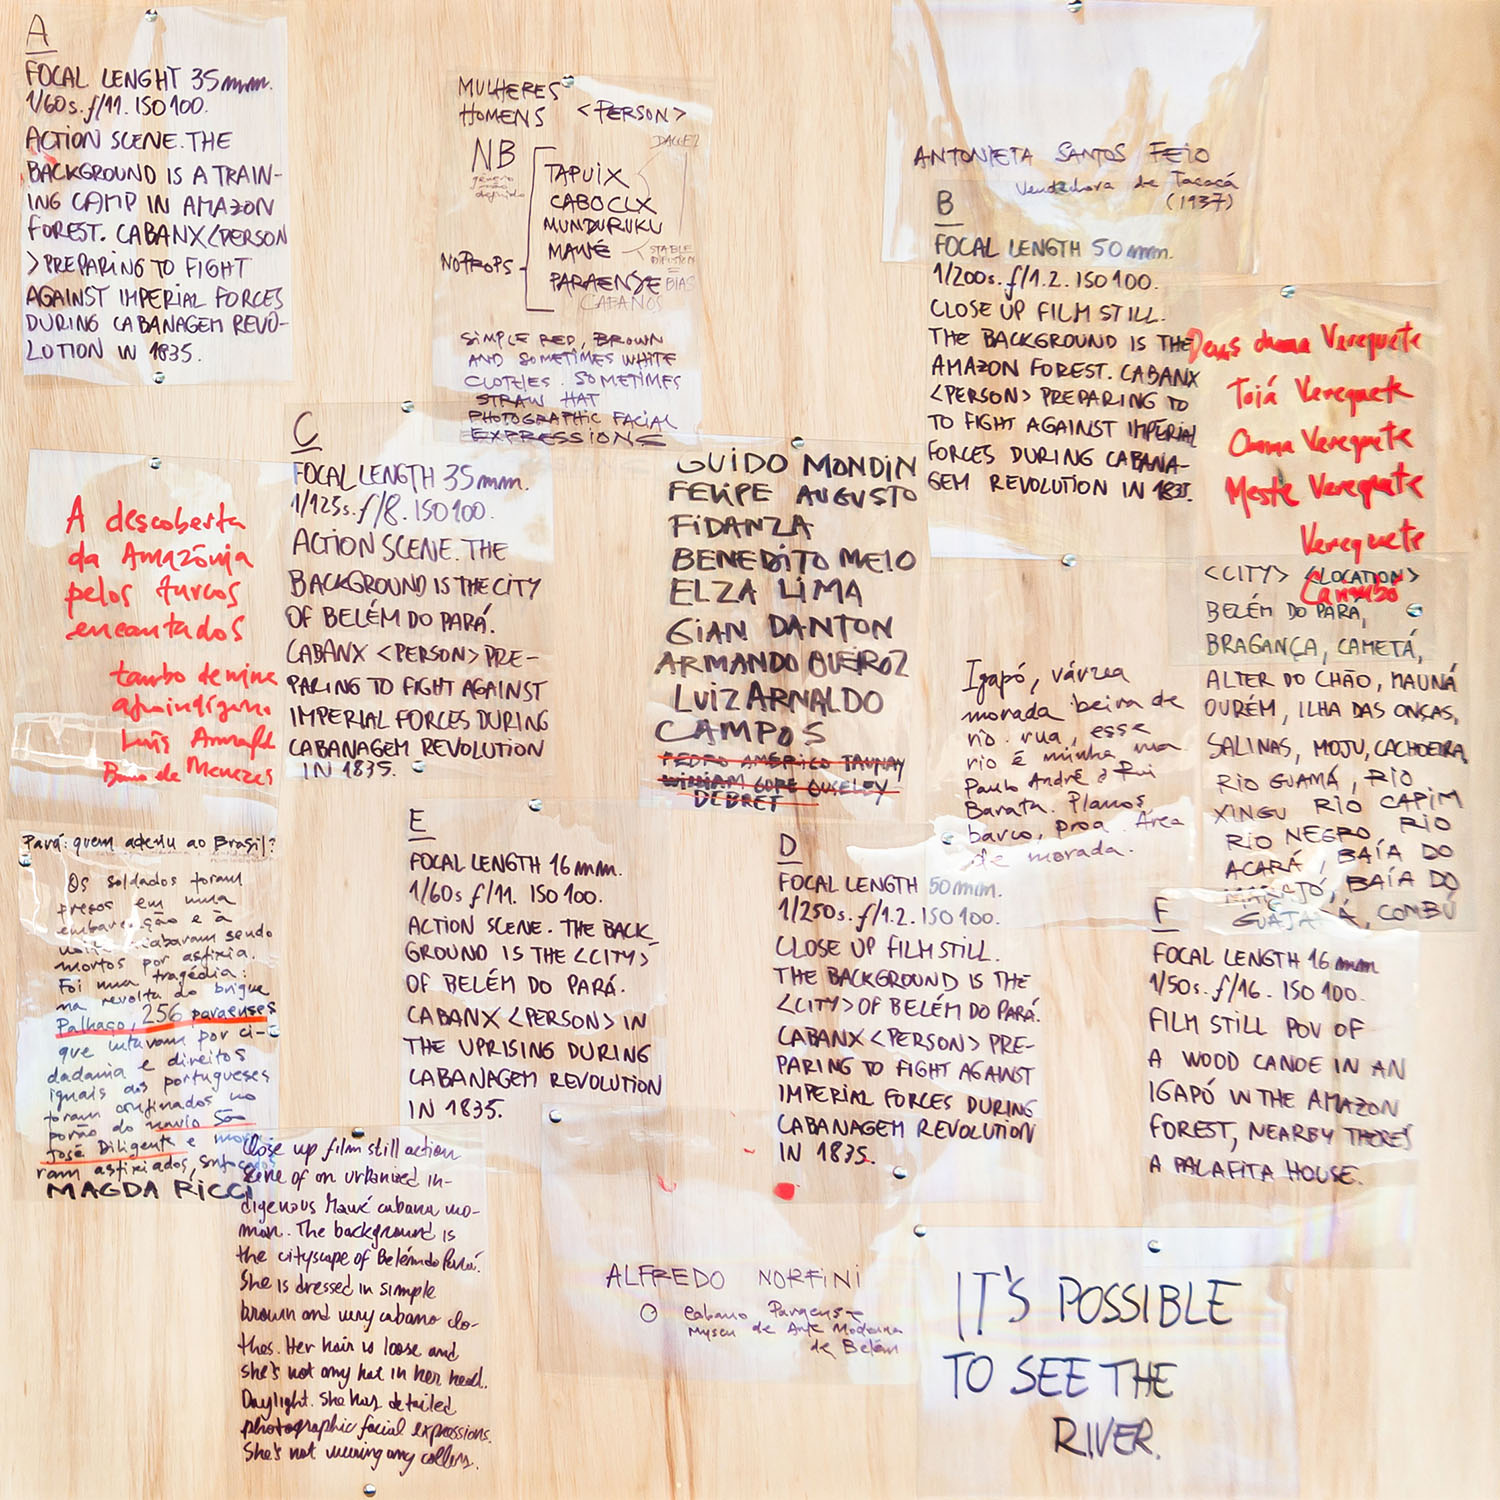 A
FOCAL LENGHT 35mm.
1/60s. f/11. ISO 100.
ACTION SCENE. THE
BACKGROUND IS A TRAIN-
ING CAMP IN AMAZON
FOREST. CABANX <PERSON
> PREPARING TO FIGHT
AGAINST IMPERIAL FORCES
DURING CABANAGEM REVO-
LUTION IN 1835.
MULHERES
HOMENS <PERSON>
NB
gênero
não
definido
DALLE2
TAPUIX
CABOCLX
MUNDURUKU
MAWÉ
NO PROPS
STABLE
DIFUSION
=
BIAS
PARAENSE
CABANOS
SIMPLE RED, BROWN
AND SOMETIMES WHITE
CLOTHES. SOMETIMES
STRAW HAT
PHOTOGRAPHIC FACIAL
EXPRESSIONS
ANTONIETA SANTOS FEIO
Vendedora de Tacacá
(1937)
B
FOCAL LENGTH 50mm.
1/200s. f/1.2. ISO 100.
CLOSE UP FILM STILL.
THE BACKGROUND IS THE
AMAZON FOREST. CABANX
<PERSON> PREPARING TO
TO FIGHT AGAINST IMPERIAL
FORCES DURING CABANA-
GEM REVOLUTION IN 1835.
Verequete
Toiá Verequete
Verequete
Verequete
Verequete
Carimbó
C
FOCAL LENGTH 35mm.
1/125s. f/8. ISO 100.
ACTION SCENE. THE
BACKGROUND IS THE CITY
OF BELÉM DO PARÁ.
CABANX <PERSON> PRE-
PARING TO FIGHT AGAINST
IMPERIAL FORCES DURING
CABANAGEM REVOLUTION
IN 1835.
A descoberta
da Amazônia
pelos turcos
encantados
tambo de mina
afroindígena
Luís Arnaldo
Bruno de Menezes
GUIDO MONDIN
FELIPE AUGUSTO
FIDANZA
BENEDITO MELO
ELZA LIMA
GIAN DANTON
ARMANDO QUEIROZ
LUIZ ARNALDO
CAMPOS
PEDRO AMÉRICO TAUNAY
WILLIAM GORE OUSELEY
DEBRET
<CITY> <LOCATION>
BELÉM DO PARÁ,
BRAGANÇA, CAMETÁ,
ALTER DO CHÃO, MAUNÁ
OURÉM, ILHA DAS ONÇAS,
SALINAS, MOJU, CACHOEIRA,
RIO GUAMÁ, RIO
XINGU RIO CAPIM
RIO NEGRO RIO
ACARÁ, BAÍA DO
MARAJÓ, BAÍA DO
GUAJARÁ, COMBÚ
Igapó, várzea
morada beira de
rio. rua, esse
rio é minha rua
Paulo André e Rui
Barata. Planos
barco, proa. Área
de morada.
Pará: quem aderiu ao Brasil?
Os soldados foram
presos em uma
embarcação e à
noite acabaram sendo
mortos por asfixia.
Foi uma tragédia:
na revolta do brigue
Palhaço, 256 paraenses
que lutavam por ci-
dadania e direitos
iguais aos portugueses
foram confinados no
porão do navio São
José Diligente e mor-
ram asfixiados, sufocados
MAGDA RICCI
E
FOCAL LENGTH 16mm.
1/60s f/11. ISO 100.
ACTION SCENE. THE BACK-
GROUND IS THE <CITY>
OF BELÉM DO PARÁ.
CABANX <PERSON> IN
THE UPRISING DURING
CABANAGEM REVOLUTION
IN 1835.
D
FOCAL LENGTH 50mm.
1/250s. f/1.2. ISO 100.
CLOSE UP FILM STILL.
THE BACKGROUND IS THE
<CITY> OF BELÉM DO PARÁ.
CABANX <PERSON> PRE-
PARING TO FIGHT AGAINST
IMPERIAL FORCES DURING
CABANAGEM REVOLUTION
IN 1835.
F
FOCAL LENGTH 16mm
1/50s. f/16. ISO 100.
FILM STILL POV OF
A WOOD CANOE IN AN
IGAPÓ IN THE AMAZON
FOREST, NEARBY THERE'S
A PALAFITA HOUSE.
Close up film still action
scene of an urbanized in-
digenous Mawé cabana wo-
man. The background is
the cityscape of Belém do Pará.
She is dressed in simple
brown and very cabano clo-
thes. Her hair is loose and
she's not any hat in her head.
Daylight. She has detailed
photographic facial expressions.
She's not wearing any collars.
ALFREDO NORFINI
O Cabano Paraense
Museu de Arte Moderna
de Belém
IT'S POSSIBLE
TO SEE THE
RIVER.